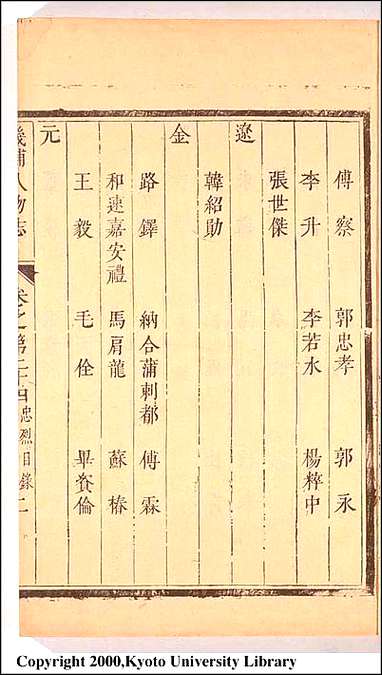 傅察　郭忠孝　郭永
李升　李若水　楊粹中
張世傑
遼
韓紹勛
金
路鐸　納合蒲剌都　傅霖
和速嘉安禮　馬肩龍　蘇椿
王毅　毛佺　畢資倫
元
畿輔人物志　卷之第二十四　忠烈目錄　二
Copyright 2000,Kyoto University Library